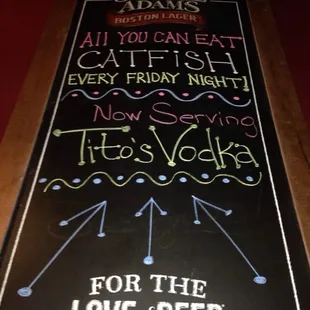 ADAMS
BOSTON LAGER
All YOU CAN EAT
CATFISH
EVERY FRIDAY NIGHT!
Now Serving
Tito's Vodka
FOR THE
LOVE of BEER